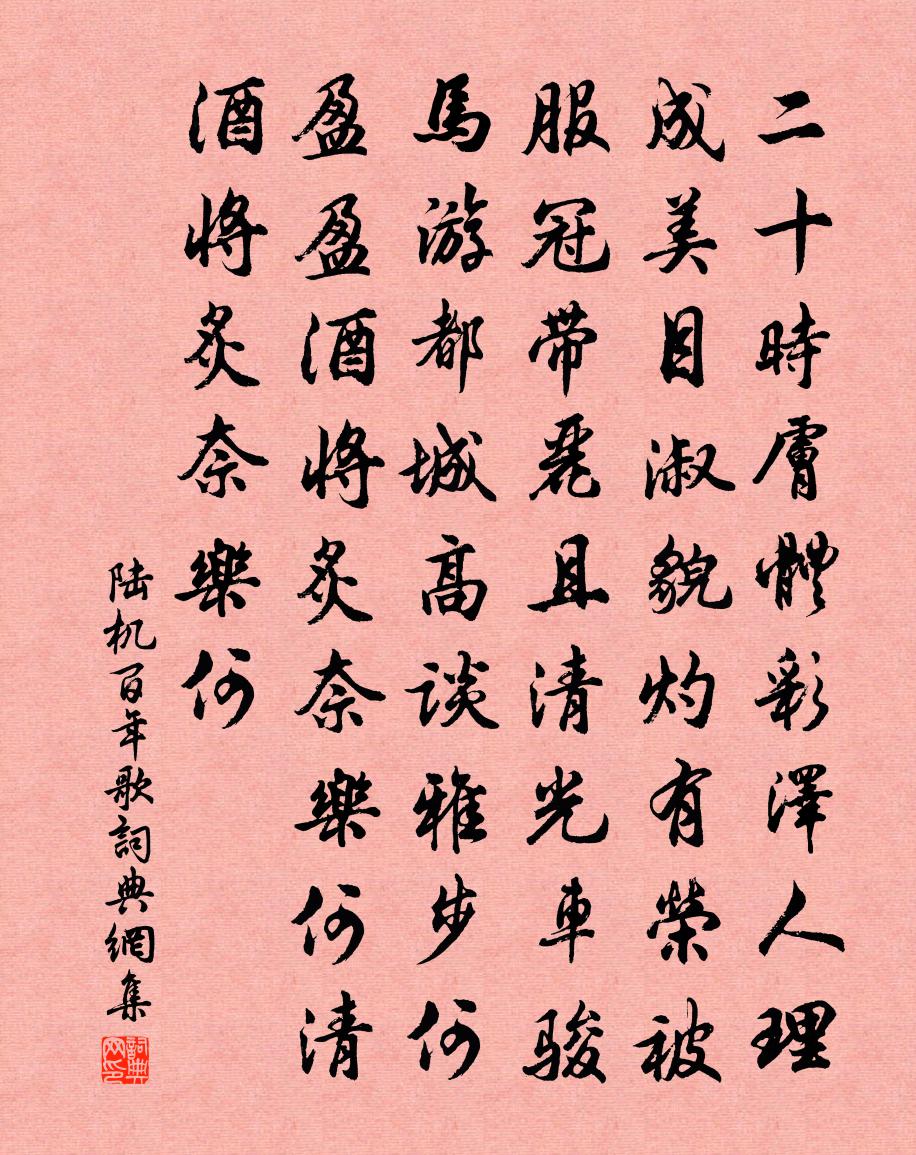 二十時膚體彩澤人理
成美目淑貌灼有榮被
服冠帶麗且清光車骏
馬游都城高谈雅步何
盈盈酒將炙奈樂何清
酒將炙奈樂何
陆机百年歌詞典網集
詞典網印